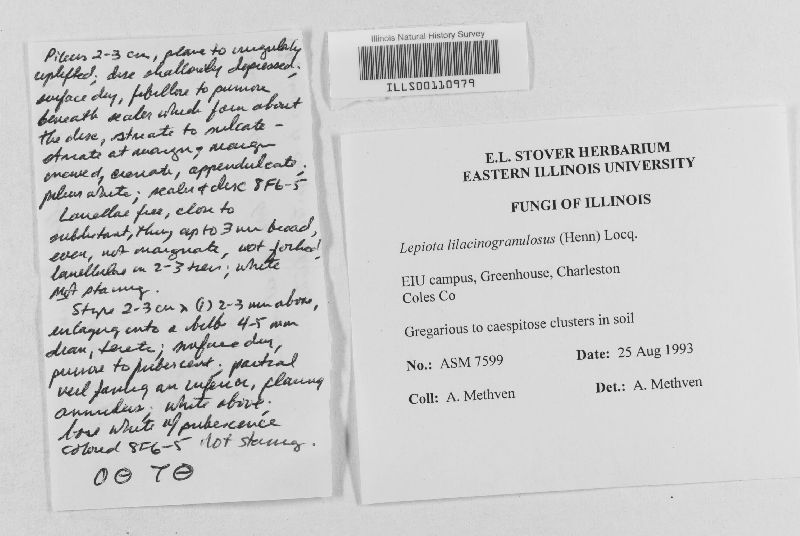 Pileus 2-3 cm, plane to irregularly
uplifted; disc shallowly depressed.
surface dry, fibrillose to pruinose
beneath scales which form about
the disc, striate to sulcate -
striate at margin; margin
incurved, crenate, appendiculate;
pileus white; scales & disc 8F6-5
Lamellae free, close to
subdistant, thin, up to 3 mm broad,
even, not marginate, not forked,
lamellulae in 2-3 tiers; white
not staining.
Stipe 2-3 cm x (1) 2-3 mm above,
enlarging into a bulb 4-5 mm
diam, terete; surface dry,
pruinose to pubescent; partial
veil forming an inferior, flaring
annulus; white above.
base white w/ pubescence
colored 8F6-5 Not staining.
Illinois Natural History Survey
ILLS00110979
E.L. STOVER HERBARIUM
EASTERN ILLINOIS UNIVERSITY
FUNGI OF ILLINOIS
Lepiota lilacinogranulosus (Henn) Locq.
EIU campus, Greenhouse, Charleston
Coles Co
Gregarious to caespitose clusters in soil
No.: ASM 7599 Date: 25 Aug 1993
Coll: A. Methven Det.: A. Methven